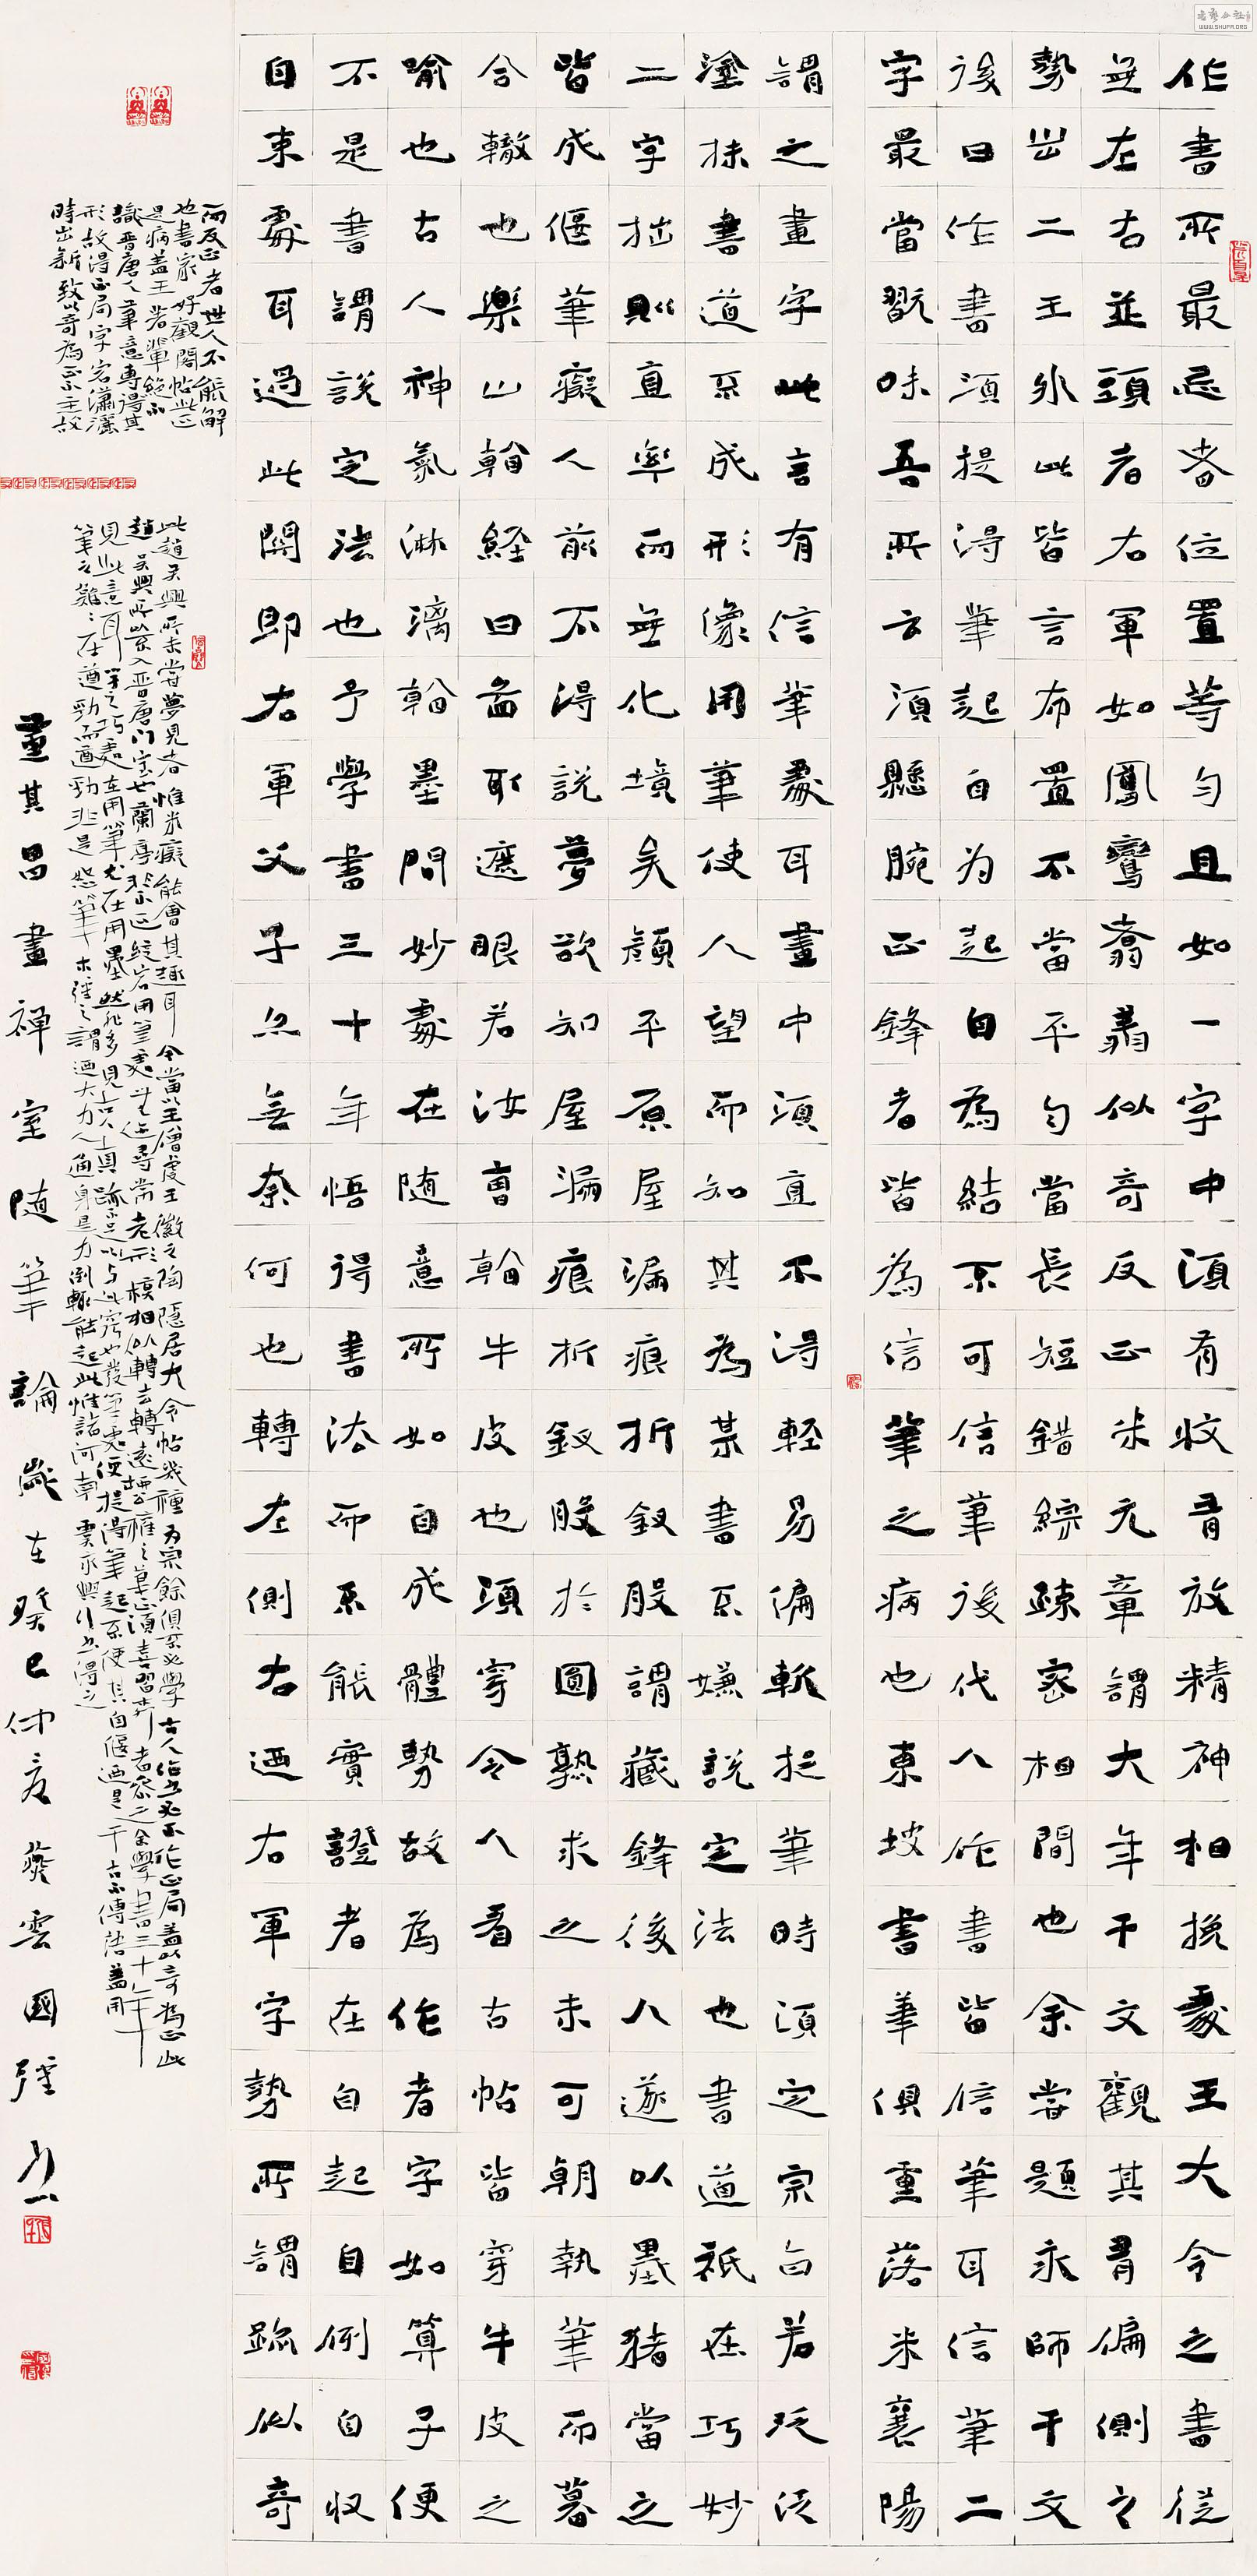 作書所最忌者位置等勻且如一字中須有收有放精神相挽處王大令之書從
無左右並頭者右軍如鳳鸞翥翔似奇反正米元章謂大年千文觀其有偏側之
勢出二王外此皆言布置不當平勻當長短錯綜疎密相間也余嘗題永師千文
後曰作書須提得筆起自為起自為結不可信筆後代人作書皆信筆耳信筆二
字最當翫味吾所云須懸腕正鋒者皆為信筆之病也東坡書筆俱重落米襄陽
謂之畫字此言有信筆處耳畫中須直不得輕易偏軟捉筆時須定宗旨若泛泛
塗抹書道不成形像用筆使人望而知其為某書不嫌說定法也書道祇在巧妙
二字拙則直率而無化境矣顏平原屋漏痕折釵股謂藏鋒後人遂以墨豬當之
皆成偃筆癡人前不得說夢欲知屋漏痕折釵股於圓熟求之未可朝執筆而暮
合轍也樂山看經曰圖取遮眼若汝曹看牛皮也須穿今人看古帖皆穿牛皮之
喻也古人神氣淋漓翰墨間妙處在隨意所如自成體勢故為作者字如算子便
不是書謂說定法也予學書三十年悟得書法而不能實證者在自起自倒自收
自束處耳過此關即右軍父子亦無奈何也轉左側右迺右軍字勢所謂跡似奇
而反正者世人不能解
也書家好觀閣帖此正
是病蓋王著輩絕不
識晉唐人筆意專得其
形故得正局字宕瀟灑
時出新致以奇為正不主故
此趙吳興所未嘗夢見者惟米癡能會其趣耳今當以王僧虔王徽之陶隱居大令帖幾種為宗餘俱不必學古人作書必不作正局蓋以奇為正此
趙吳興所以不入晉唐門室也蘭亭非不正縱宕用筆處無迹尋常老形模相似轉去轉遠柳公權之筆正須善學者參之余學書三十年
見此意耳字之巧處在用筆尤在用墨然非多見古人真跡不足以與此竅也發筆處便提得筆起不使其自偃迺是千古不傳語蓋用
筆之難難在遒勁而遒勁非是怒筆木強之謂迺大力人通身是力倒輒能起此惟褚河南虞永興行書得之
董其昌畫禪室隨筆論歲在癸巳仲夏燕雲國強書
WWW.SHUFR.ORG